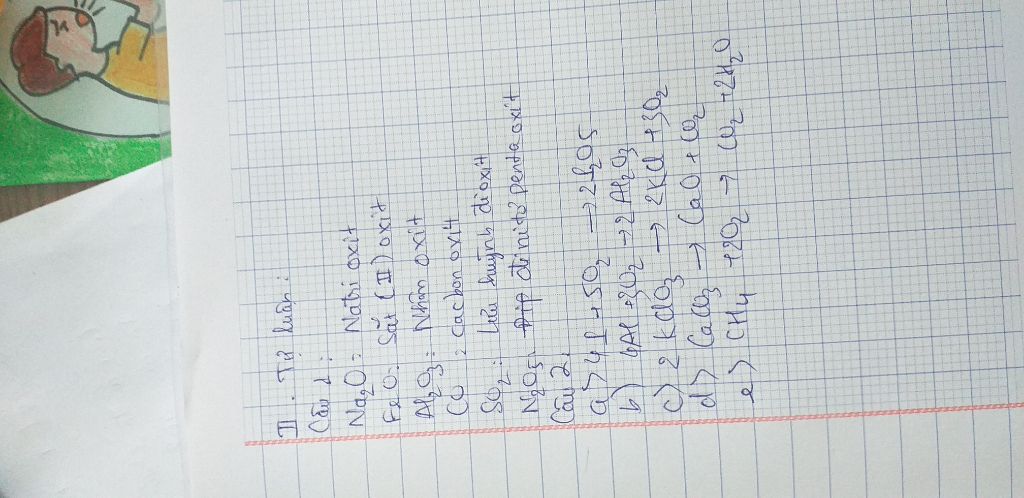 II. Tự luận:
Câu 1:
Na2O: Natri oxit
FeO: Sắt (II) oxit
Al2O3: Nhôm oxit
CO: cacbon oxit
SO2: Lưu huỳnh đioxit
N2O5: đinitơ pentaoxit
Câu 2:
a) 4P + 5O2 → 2P2O5
b) 4Al + 3O2 → 2Al2O3
c) 2KClO3 → 2KCl + 3O2
d) CaCO3 → CaO + CO2
e) CH4 + 2O2 → CO2 + 2H2O